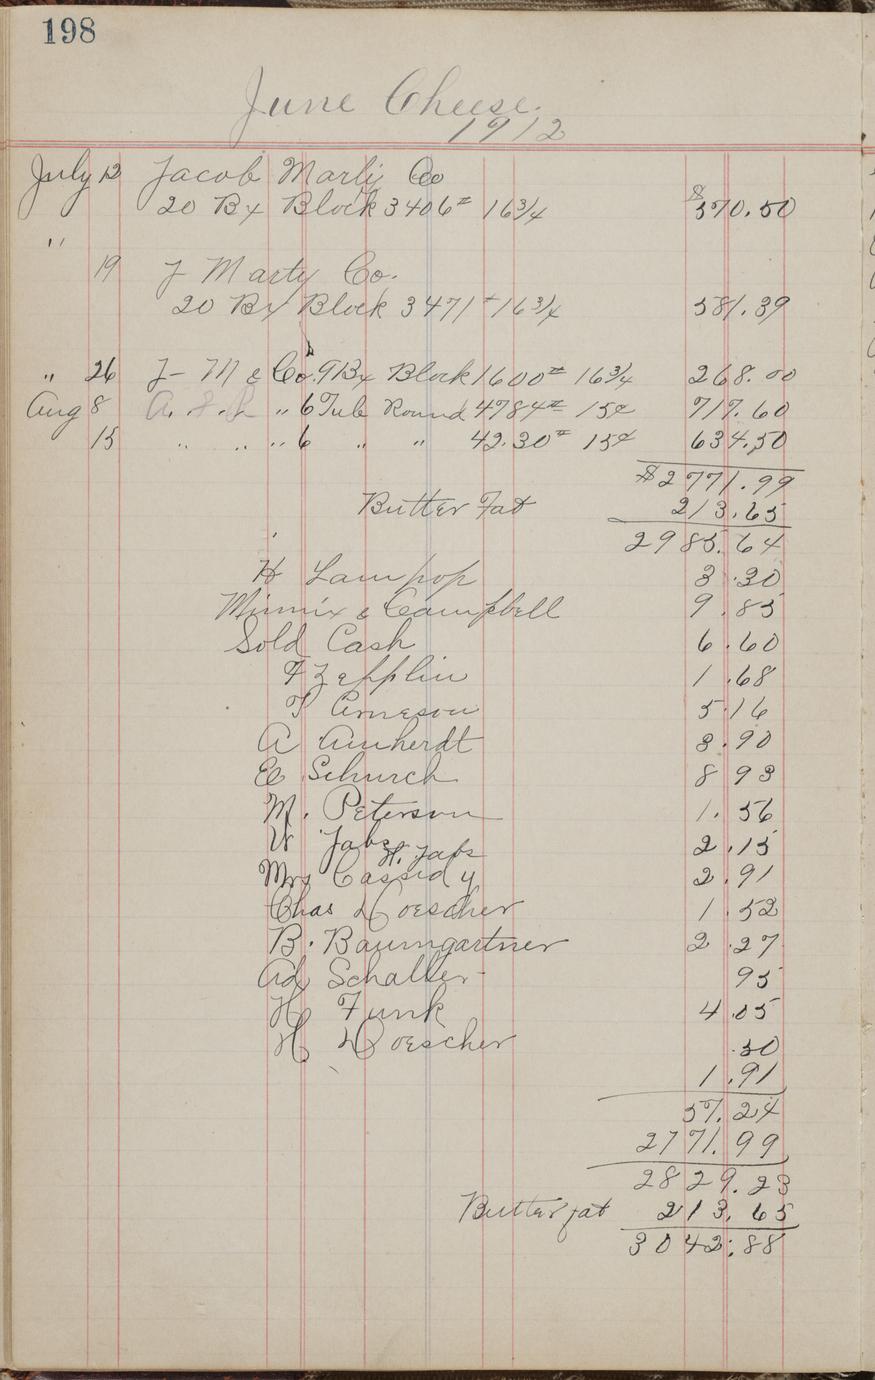 198
June Cheese.
1912
July 12 Jacob Marty Co
20 Bx Block 3406# 16 3/4 $570.50
"
19 J Marty Co.
20 Bx Block 3471# 16 3/4 581.39
" 26 J- M & Co. 9 Bx Block 1600# 16 3/4 268.00
Aug 8 " 6 Tub Round 4784# 15¢ 717.60
15 " " " " 6 " " 42.30# 15¢ 634.50
$2771.99
Butter Fat 213.65
2985.64
H Lampop 3.30
Minnix & Campbell 9.85
Sold Cash 6.60
F Zepplin 1.68
T Arneson 5.16
A Amherdt 3.90
E Schurch 8 93
M. Peterson 1.56
W Jabs H. Jabs 2.15
Mrs Cassidy 2.91
Chas Doescher 1.52
B. Baumgartner 2.27
Ad Schaller- 95
H Funk 4.05
H Doescher .50
1.91
57.24
2771.99
2829.23
Butter fat 213.65
3042.88